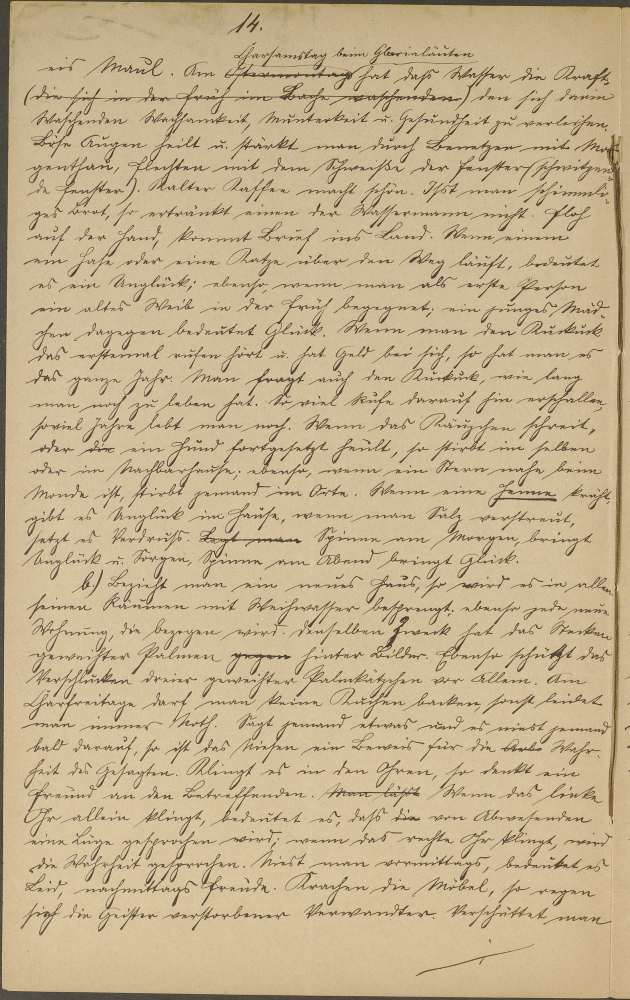 14.
Charsamstag beim Glorialäuten
eis Maul. Am Ostermontag hat dass Wasser die Kraft,
(die sich in der Früh im Bache waschenden) den sich darin
Waschenden Wachsamkeit, Munterkeit u. Gesundheit zu verleihen.
Böse Augen heilt u. stärkt man durch Benetzen mit Mor-
genthau, Flechten mit dem Schweiße der Fenster (schwitzen-
de Fenster). Kalter Kaffee macht schön. Ißt man schimmli-
ges Brot, so ertränkt einen der Wassermann nicht. Floh
auf der Hand, kommt Brief ins Land. Wenn einem
ein Hase oder eine Katze über den Weg läuft, bedeutet
es ein Unglück; ebenso, wenn man als erste Person
ein altes Weib in der Früh begegnet; ein junges Mäd-
chen dagegen bedeutet Glück. Wenn man den Kuckuck
das erstemal rufen hört u. hat Geld bei sich, so hat man es
das ganze Jahr. Man fragt auch den Kuckuk, wie lang
man noch zu leben hat. So viel Rufe darauf hin erschallen,
soviel Jahre lebt man noch. Wenn das Käuzchen schreit,
oder die ein Hund fortgesetzt heult, so stirbt im selben
oder im Nachbarhause; ebenso, wenn ein Stern nahe beim
Monde ist, stirbt jemand im Orte. Wenn eine Henne kräht,
gibt es Unglück im Hause, wenn man Salz verstreut,
setzt es Verdruss. Legt man Spinne am Morgen, bringt
Unglück u. Sorgen, Spinne am Abend bringt Glück.
b.) Bezieht man ein neues Haus, so wird es in allen
seinen Räumen mit Weihwasser besprengt, ebenso jede neue
Wohnung, die bezogen wird. Denselben Zweck hat das Stecken
geweihter Palmen gegen hinter Bilder. Ebenso schützt das
Verschlucken dreier geweihter Palmkätzchen vor Allem. Am
Charfreitage darf man keine Kuchen backen, sonst leidet
man immer Noth. Sagt jemand etwas und es niest jemand
bald darauf, so ist das Niesen ein Beweis für die Wahr-
heit des Gesagten. Klingt es in den Ohren, so denkt ein
Freund an den Betreffenden. Man läßt Wenn das linke
Ohr allein klingt, bedeutet es, dass die von Abwesenden
eine Lüge gesprochen wird; wenn das rechte Ohr klingt, wird
die Wahrheit gesprochen. Niest man vormittags, bedeutet es
Leid, nachmittags Freude. Krachen die Möbel, so regen
sich die Geister verstorbener Verwandter. Verschüttet man